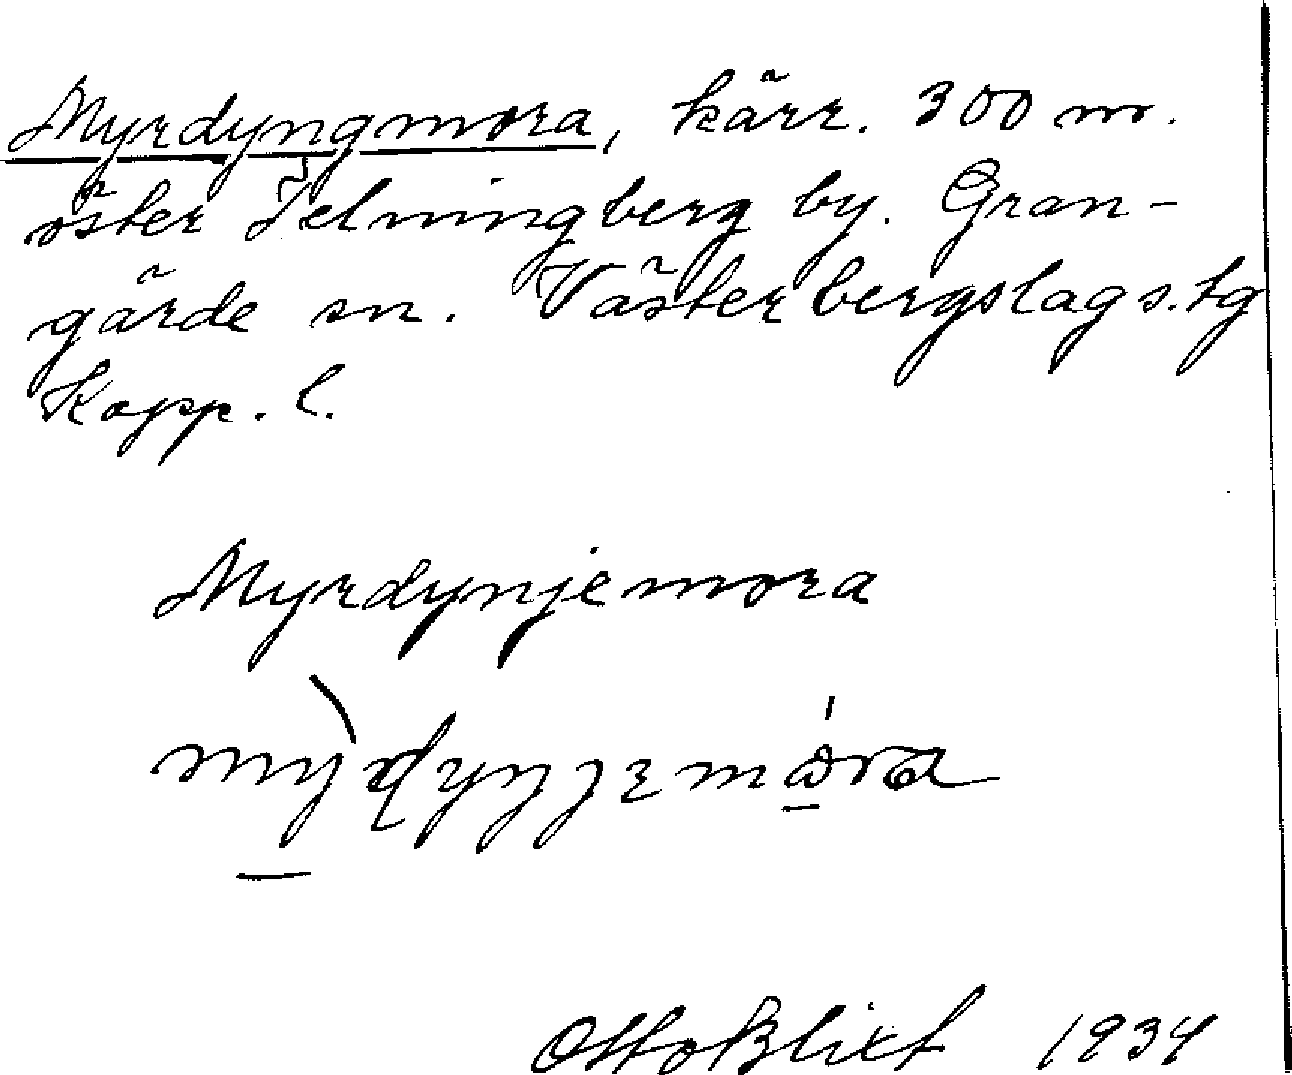 Myrdyngmora, kärr. 300 m.
öster Jelmingberg by. Gran-
gärde sn. Västerbergslags.tg
Kopp. l.
Myrdynjemora
Otto Blixt 1934